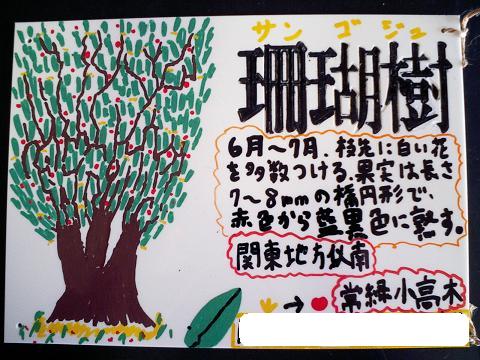 サンゴジュ
珊瑚樹
6月～7月、枝先に白い花
を多数つける。果実は長さ
7～8mmの楕円形で、
赤色から藍黒色に熟す。
関東地方以南
→
常緑小高木